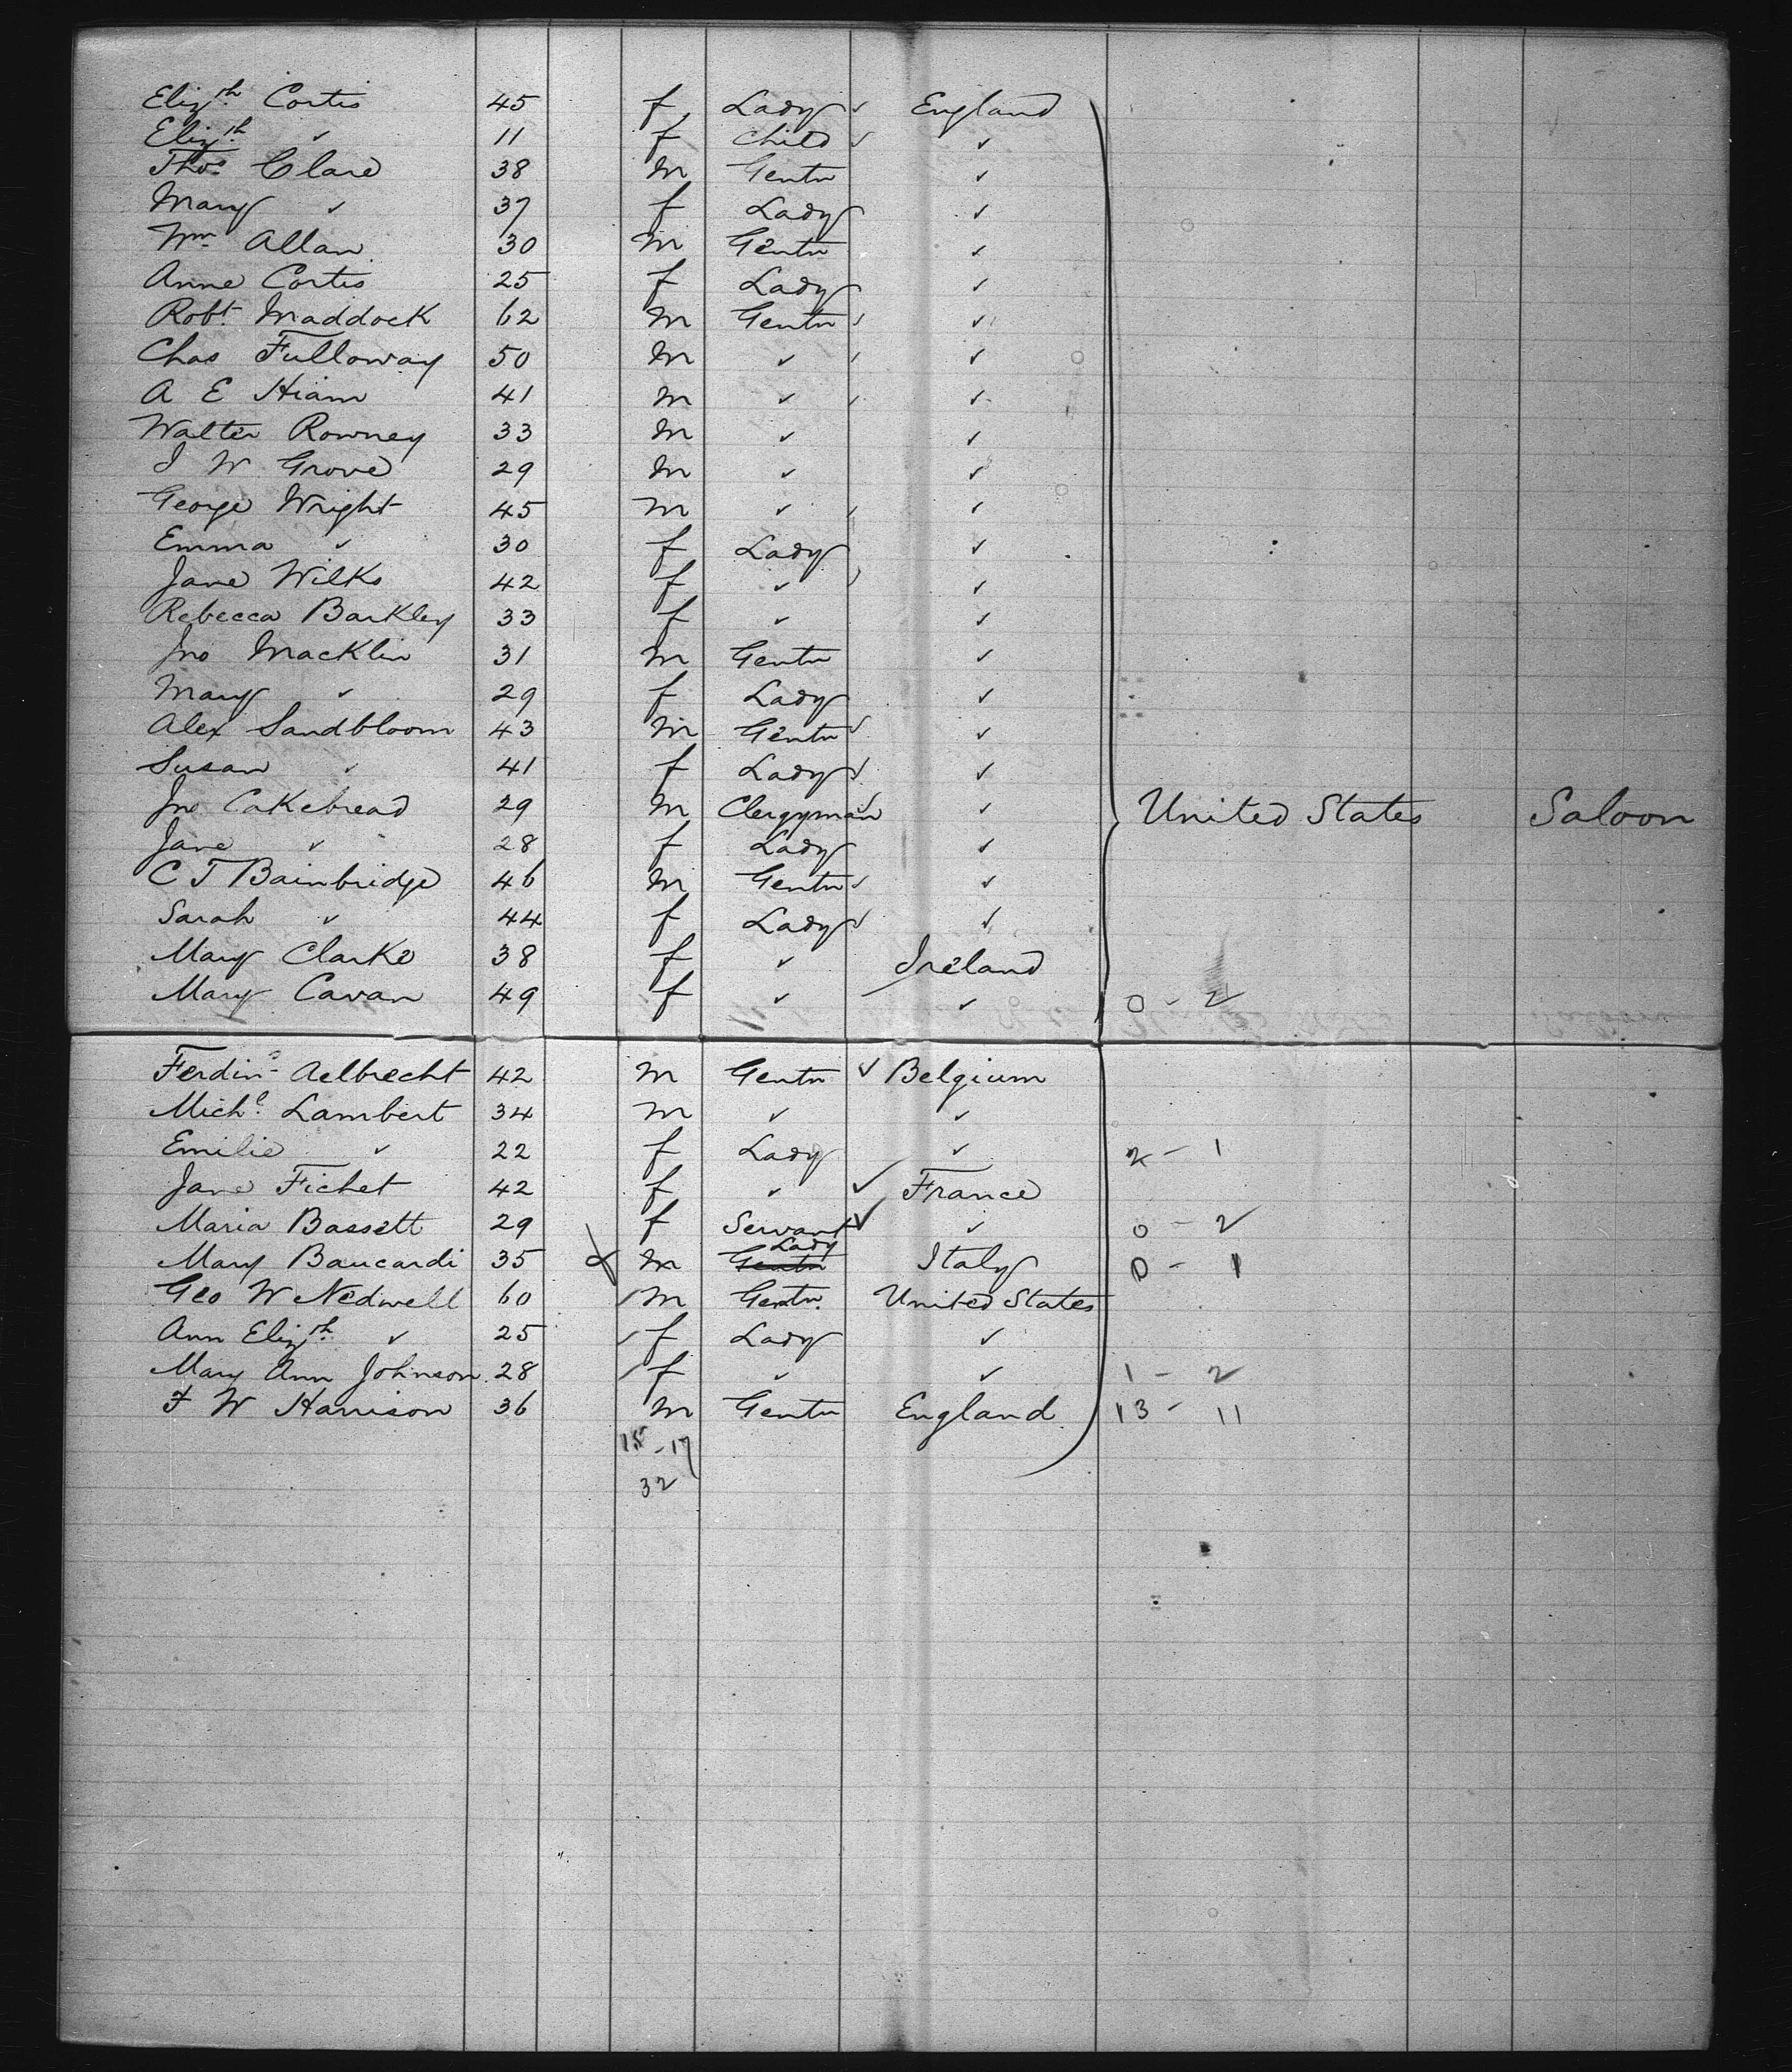 Elizth. Cortis 45 f Lady ✓ England
Elizth. ✓ 11 f Child ✓ ✓
Thos. Clare 38 m Gentn ✓
Mary ✓ 37 f Lady ✓
Wm. Allan 30 m Gentn ✓
Anne Cortis 25 f Lady ✓
Robt. Maddock 62 m Gentn ✓
Chas Fulloway 50 m ✓ ✓
A E Hiam 41 m ✓ ✓
Walter Rowney 33 m ✓ ✓
J W Grove 29 m ✓ ✓
George Wright 45 m ✓ ✓
Emma ✓ 30 f Lady ✓
Jane Wilks 42 f ✓ ✓
Rebecca Barkley 33 f ✓ ✓
Jno Macklin 31 m Gentn ✓
Mary ✓ 29 f Lady ✓
Alex Sandbloom 43 m Gentn ✓ ✓
Susan ✓ 41 f Lady ✓ ✓
Jno Cakebread 29 m Clergyman ✓ ✓ United States Saloon
Jane ✓ 28 f Lady ✓
C T Bainbridge 46 m Gentn ✓ ✓
Sarah ✓ 44 f Lady ✓ ✓
Mary Clarke 38 f ✓ Ireland
Mary Cavan 49 f ✓ ✓ 0 - 2
Ferdind. Aelbrecht 42 m Gentn ✓ Belgium
Michl. Lambert 34 m ✓ ✓
Emilie ✓ 22 f Lady ✓ 2 - 1
Jane Fichet 42 f ✓ ✓ France
Maria Bassett 29 f Servant ✓ ✓ 0 - 2
Mary Baucardi 35 m Gentn Lady Italy 0 - 1
Geo W Nedwell 60 m Gentn. United States
Ann Elizth. ✓ 25 f Lady ✓
Mary Ann Johnson 28 f ✓ ✓ 1 - 2
F W Harrison 36 m Gentn England 13 - 11
15 - 17
32